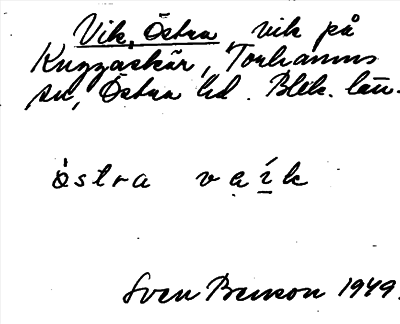 Vik, Östra, vik på
Kuggaskär, Torhamns
sn, Östra hd. Blek. län.
östra vaík
Sven Benson 1949.